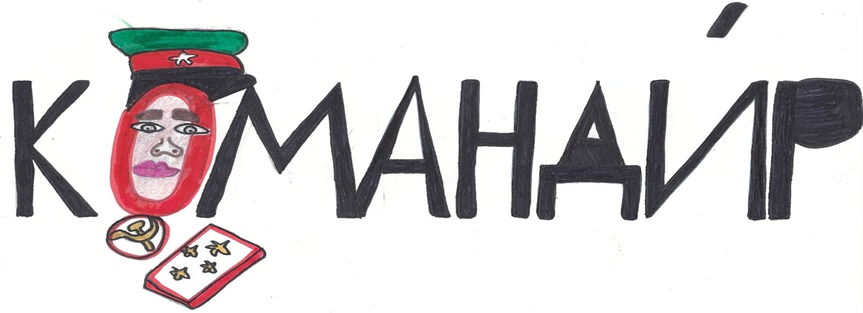 КОМАНДИ́Р